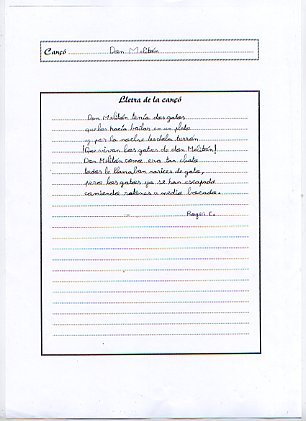 Cançó Don Melitón
Lletra de la cançó
Don Melitón tenía dos gatos
que los hacía bailar en un plato
y por la noche les daba turrón
¡Que vivan los gatos de don Melitón!
Don Melitón como era tan chato
todos le llamaban narices de gato,
pero los gatos ya se han escapado
comiendo ratones a medio bocado.
Roger C.